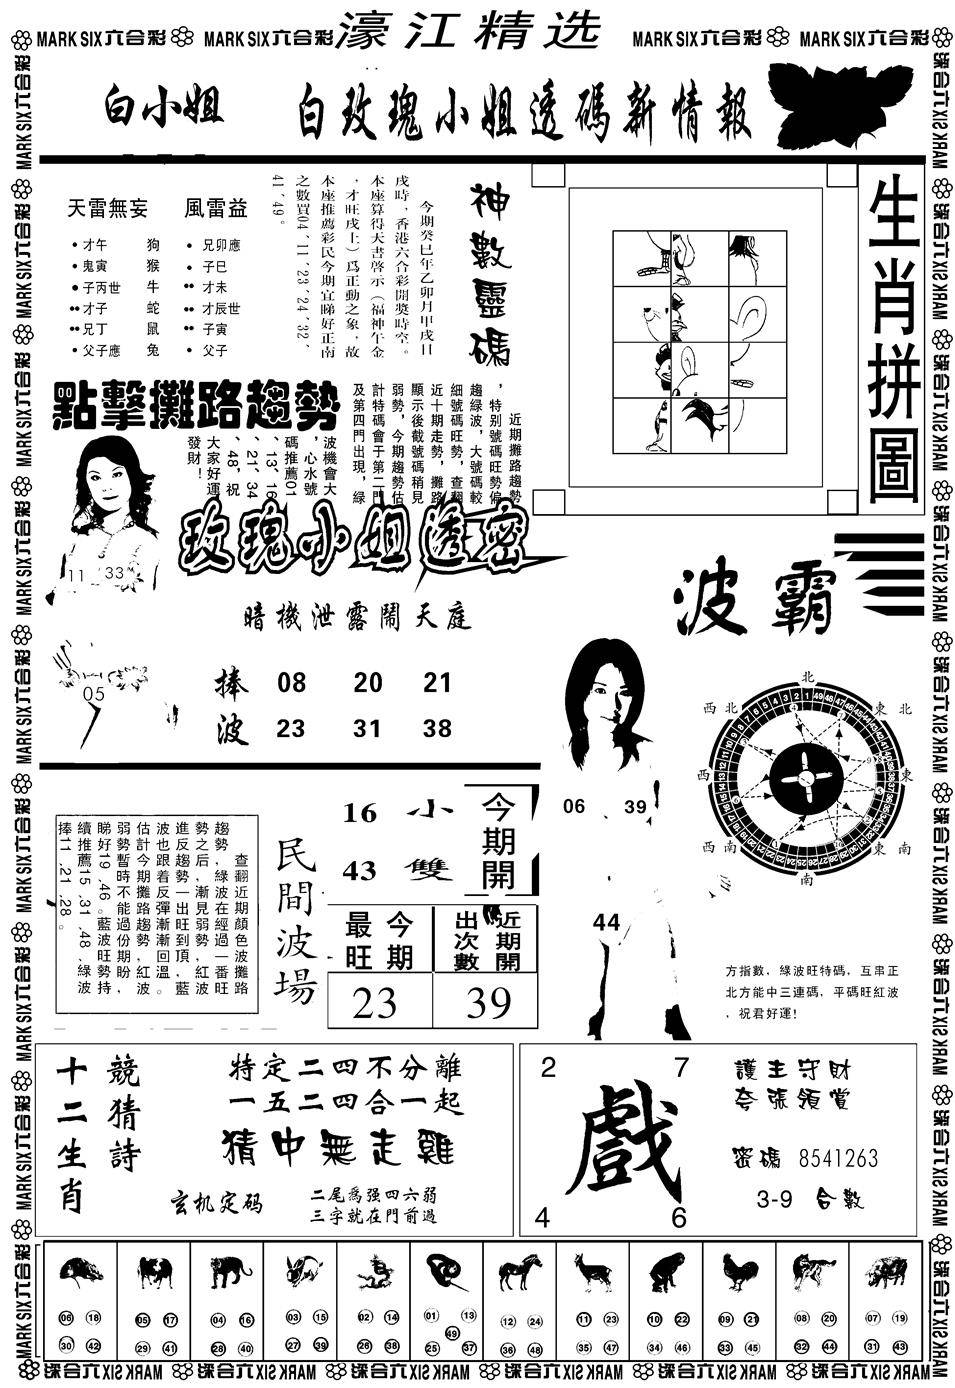 MARK SIX六合彩 MARK SIX六合彩 濠江精选 MARK SIX六合彩 MARK SIX六合彩
白小姐 白玫瑰小姐透碼新情報
天雷無妄 風雷益
•才午 狗 •兄卯應
•鬼寅 猴 •子巳
•子丙世 牛 ••才未
••才子 蛇 ••才辰世
••兄丁 鼠 ••子寅
•父子應 兔 •父子
神數靈碼
今期癸巳年乙卯月甲戌日
戌時，香港六合彩開獎時空。
本座算得天書啓示（福神午金
，才旺戌上）爲正動之象，故
本座推薦彩民今期宜睇好正南
之數買04、11、23、24、32、
41、49。
生肖拼圖
點擊攤路趨勢
近期攤路趨勢
，特别號碼旺勢偏
趨綠波，大號碼較
細號碼旺勢，查翻
近十期走勢，攤路
顯示後截號碼稍見
弱勢，今期趨勢估
計特碼會于第二門
及第四門出現，綠
波機會大
，心水號
碼推薦01
、13、16
、21、34
、48，祝
大家好運
發財！
11 33
05
玫瑰小姐透密
暗機泄露鬧天庭
捧 08 20 21
波 23 31 38
波霸
北
西北 東北
西 東
西南 東南
南
06 39
44
方指數，綠波旺特碼，互串正
北方能中三連碼，平碼旺紅波
，祝君好運！
查翻近期顏色波攤路
趨勢，綠波在經過一番旺
勢之后，漸見弱勢，紅波
進反趨勢一出旺到頂，藍
波也跟着反彈漸回溫。
估計今期攤路趨勢紅波
弱勢暫時不能過份期盼，
睇好19、46。藍波旺勢持
續推薦15、31、48、綠波
捧11、21、28。
民間波場
16 小 今期開
43 雙
今期最旺 近期開出次數
23 39
十二生肖
競猜詩
特定二四不分離
一五二四合一起
猜中無走雞
玄机定码
二尾爲强四六弱
三字就在門前過
2 7
戲
4 6
護主守財
夸張領賞
密碼 8541263
3-9 合數
06 18 05 17 04 16 03 15 02 14 01 13 12 24 11 23 10 22 09 21 08 20 07 19
49
30 42 29 41 28 40 27 39 26 38 25 37 36 48 35 47 34 46 33 45 32 44 31 43